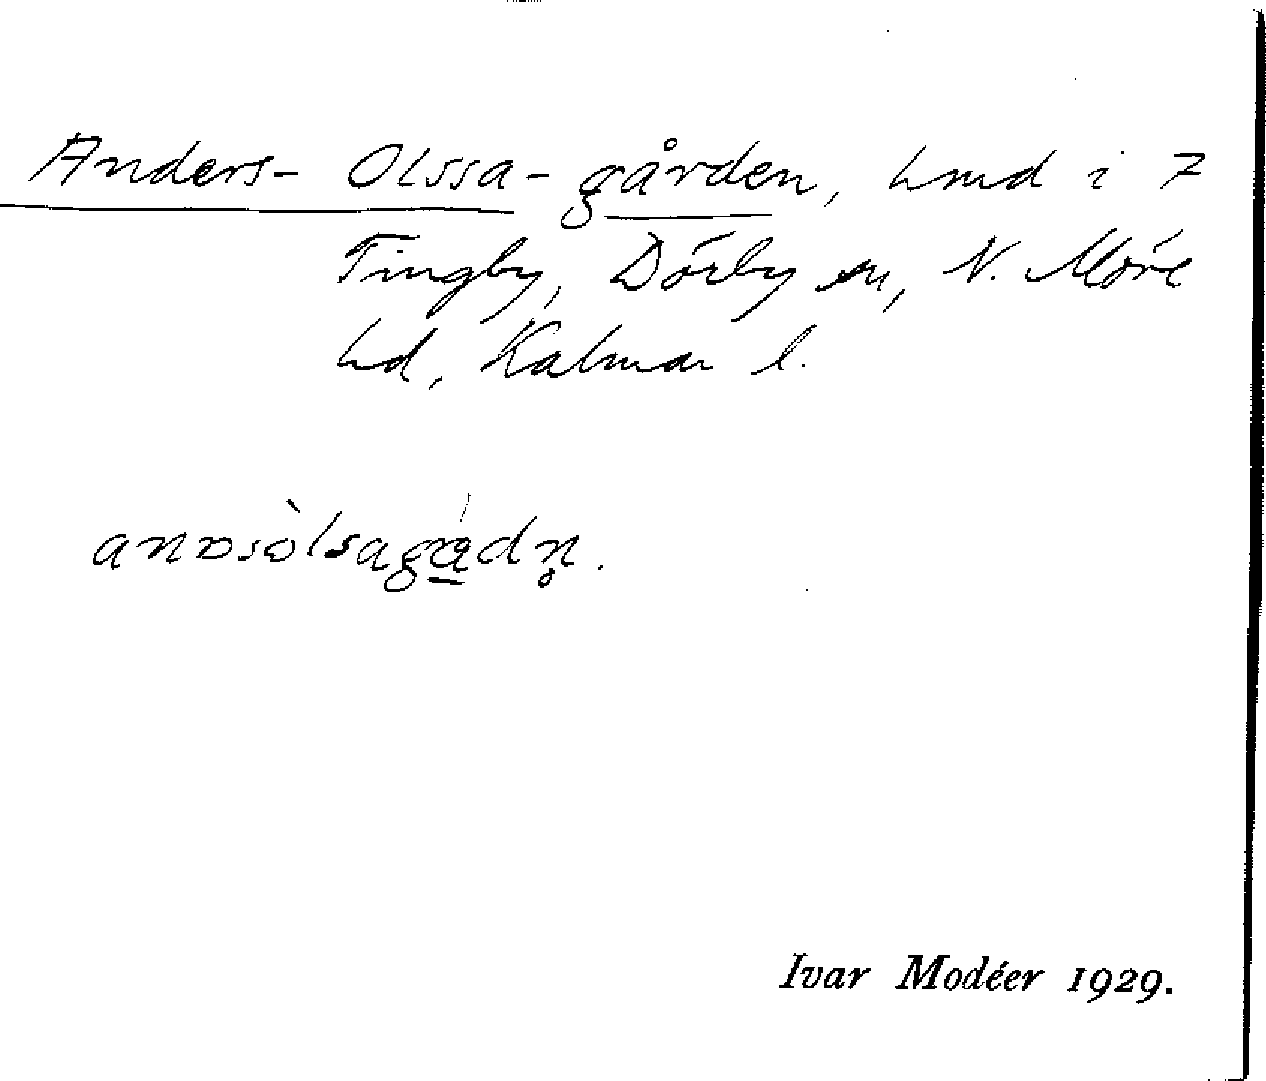 Anders-Olssa-gården, hmd i 7
Tingby, Dörby sn, N. Möre
hd, Kalmar l.
anᴅsòlsagádn̥.
Ivar Modéer 1929.